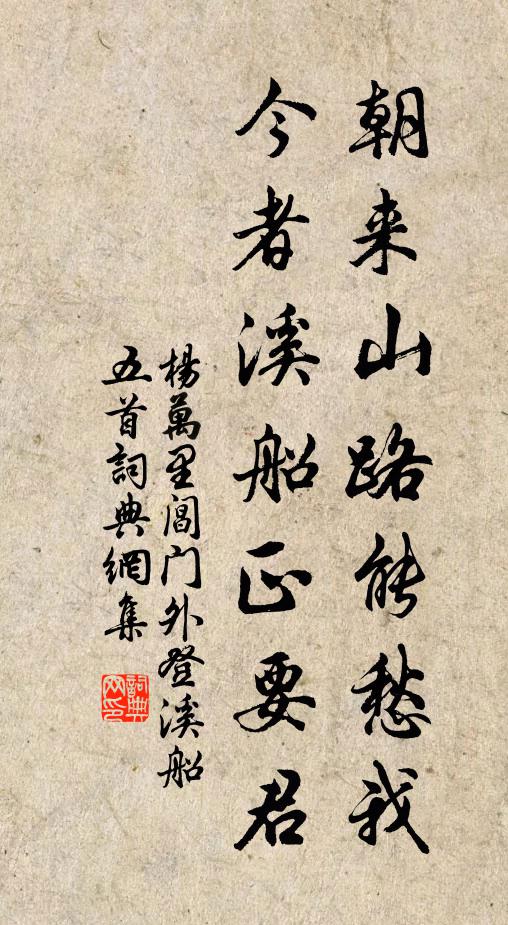 朝来山路能愁我
今者溪船正要君
楊萬里閶门外登溪船
五首詞典網集
詞典网印